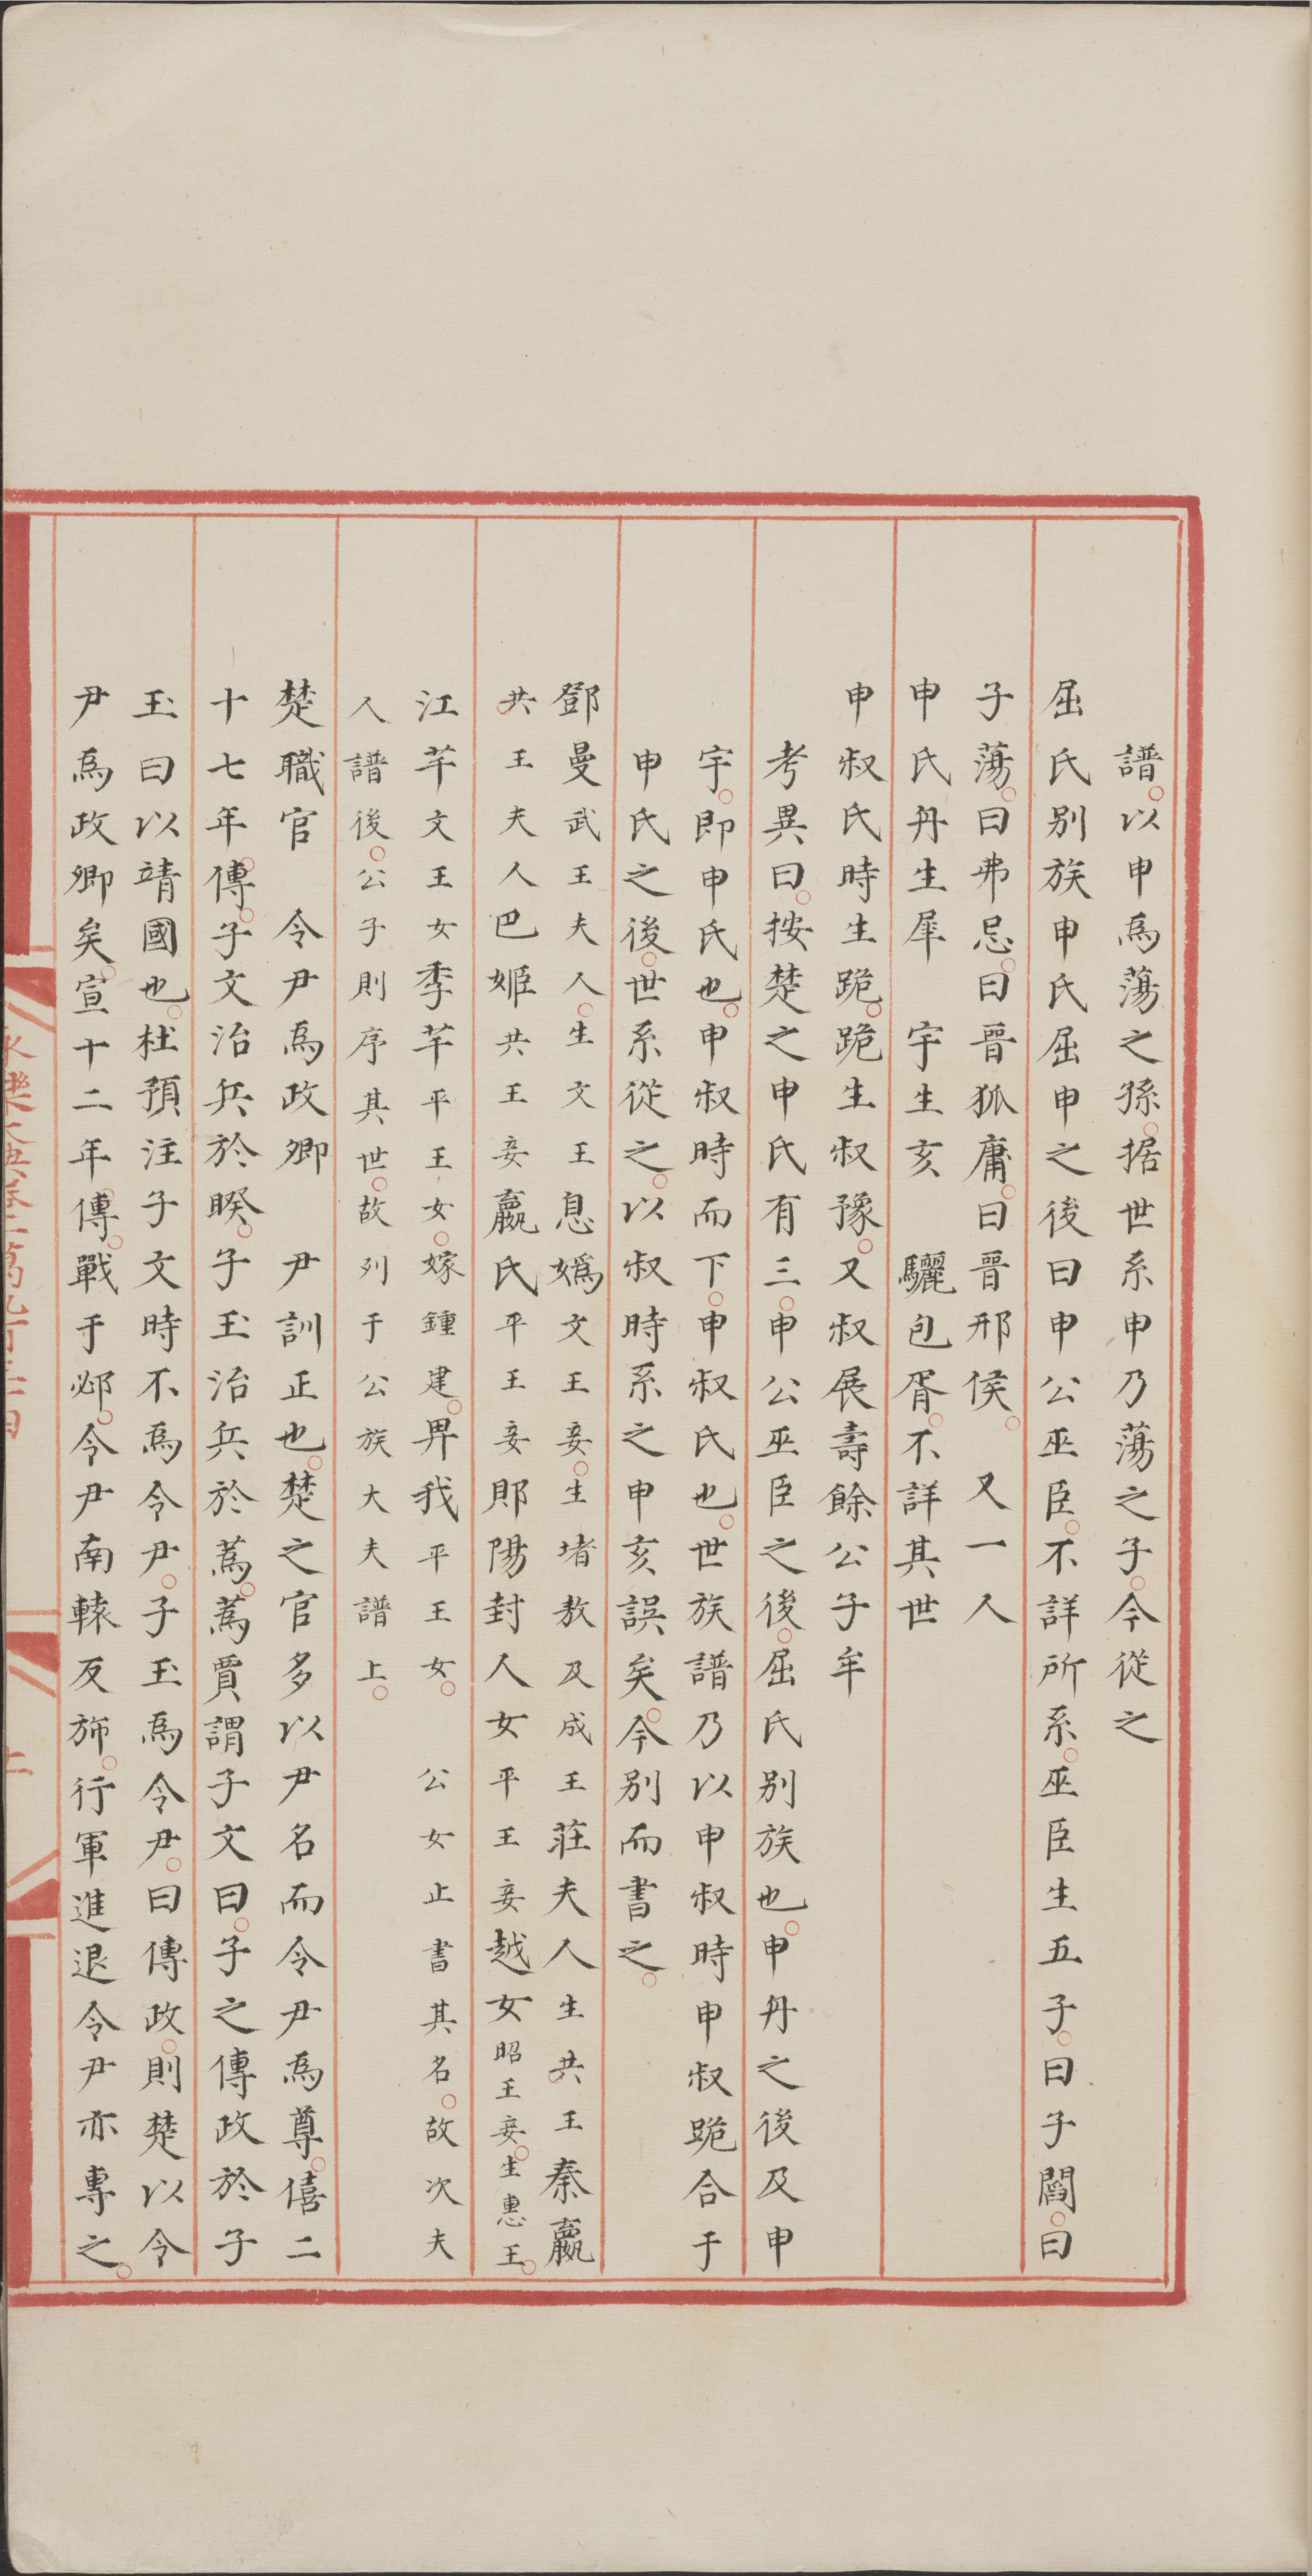 譜以申爲蕩之孫據世系申乃蕩之子今從之
屈氏別族申氏屈申之後曰申公巫臣不詳所系巫臣生五子曰子閻曰
子蕩曰弗忌曰晉狐庸曰晉邢侯　又一人
申氏丹生犀　宇生亥　驪包胥不詳其世
申叔氏時生跪跪生叔豫又叔展壽餘公子牟
考異曰按楚之申氏有三申公巫臣之後屈氏別族也申丹之後及申
宇即申氏也申叔時而下申叔氏也世族譜乃以申叔時申叔跪合于
申氏之後世系從之以叔時系之申亥誤矣今別而書之
鄧曼武王夫人生文王息媯文王妾生堵敖及成王莊夫人生共王秦嬴
共王夫人巴姬共王妾嬴氏平王妾郹陽封人女平王妾越女昭王妾生惠王
江芊文王女季芊平王女嫁鍾建畀我平王女　公女止書其名故次夫
人譜後公子則序其世故列于公族大夫譜上
楚職官　令尹爲政卿　尹訓正也楚之官多以尹名而令尹爲尊僖二
十七年傳子文治兵於睽子玉治兵於蒍蒍賈謂子文曰子之傳政於子
玉曰以靖國也杜預注子文時不爲令尹子玉爲令尹曰傳政則楚以令
尹爲政卿矣宣十二年傳戰于邲令尹南轅反斾行軍進退令尹亦專之